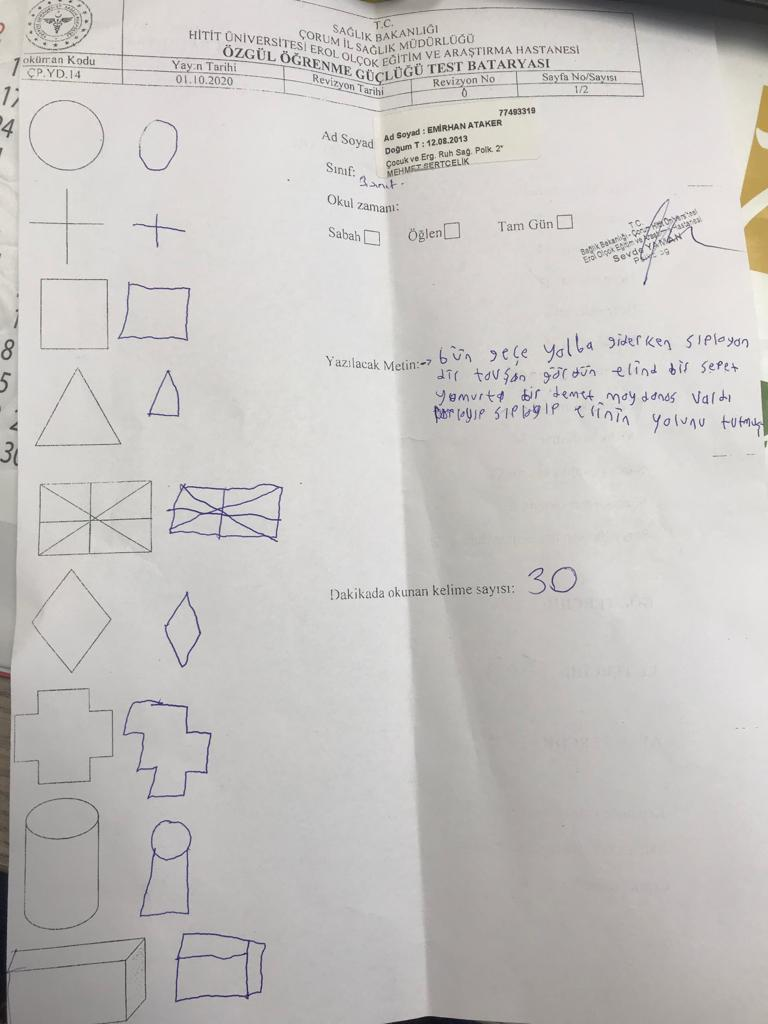 T.C.
SAĞLIK BAKANLIĞI
ÇORUM İL SAĞLIK MÜDÜRLÜĞÜ
HİTİT ÜNİVERSİTESİ EROL OLÇOK EĞİTİM VE ARAŞTIRMA HASTANESİ
ÖZGÜL ÖĞRENME GÜÇLÜĞÜ TEST BATARYASI
oküman Kodu Yayın Tarihi Revizyon Tarihi Revizyon No Sayfa No/Sayısı
ÇP.YD.14 01.10.2020 0 1/2
77493319
Ad Soyad Ad Soyad : EMİRHAN ATAKER
Doğum T : 12.08.2013
Çocuk ve Erg. Ruh Sağ. Polk. 2*
MEHMET SERTÇELİK
Sınıf: 3.sınıf.
Okul zamanı:
Sabah Öğlen Tam Gün
T.C.
Sağlık Bakanlığı - Çorum Hitit Üniversitesi
Erol Olçok Eğitim ve Araştırma Hastanesi
Sevde YAMAN
Yazılacak Metin:→ bün geçe yolba giderken sıployon
dir tovşan gördün elind bir sepet
yomurta bir demet moydonos valdı
sıployıp elinin yolunu tutmuş
Dakikada okunan kelime sayısı: 30
1
17
24
8
5
2
30